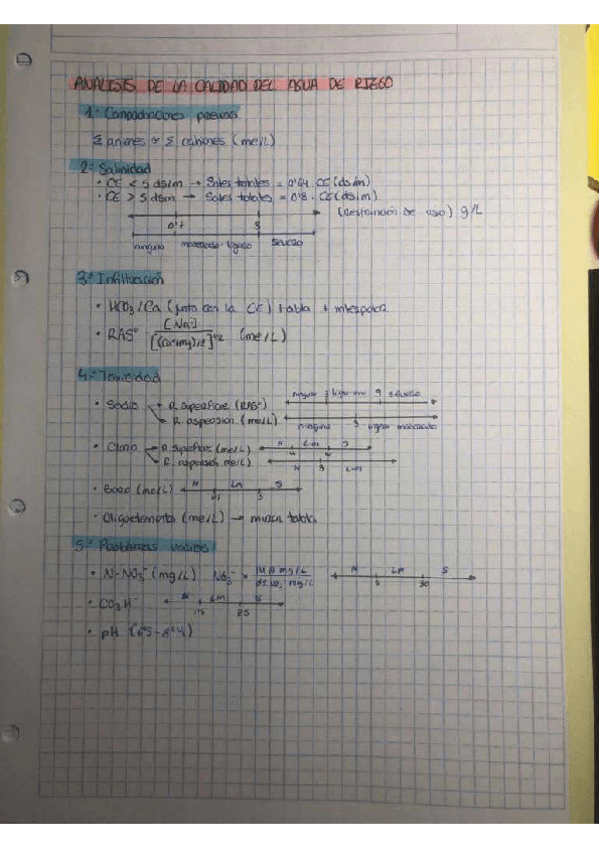 ANALISIS DE LA CALIDAD DEL AGUA DE RIEGO
1º Comprobaciones previas
Σ aniones ≈ Σ cationes (me/L)
2º Salinidad
• CE < 5 dS/m → Sales totales = 0'64 · CE (ds/m)
• CE > 5 dSm → Sales totales = 0'8 · CE (ds/m)
(restricción de uso) g/L
0'7 3
ninguno moderado-ligero Severo
3º Infiltración
• HCO3/Ca (junto con la CE) tabla + interpolar
• RASº [Na] / [(Ca+Mg)/2]^1/2 (me/L)
4º Toxicidad
• Sodio R. superficie (RASº) ninguno 3 9 severo
R. aspersión (me/L) ninguno 3 ligero moderado
• Cloro R. superficie (me/L) N LM S
R. aspersión me/L) N 3 LM
• Boro (me/L) N LM S
3
• Oligoelementos (me/L) → mirar tabla
5º Problemas varios
• N-NO3⁻ (mg/L) NO3⁻ × N LM S
5 30
• CO3H⁻ N LM S
1'5 8'5
• pH (6'5-8'4)